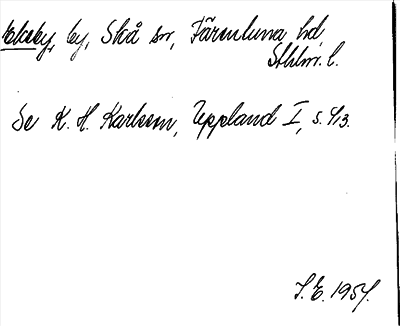 Ekeby, by, Skå sn, Färentuna hd,
Sthlm. l.
Se K. H. Karlsson, Uppland I, s. 413.
S. E. 1957.